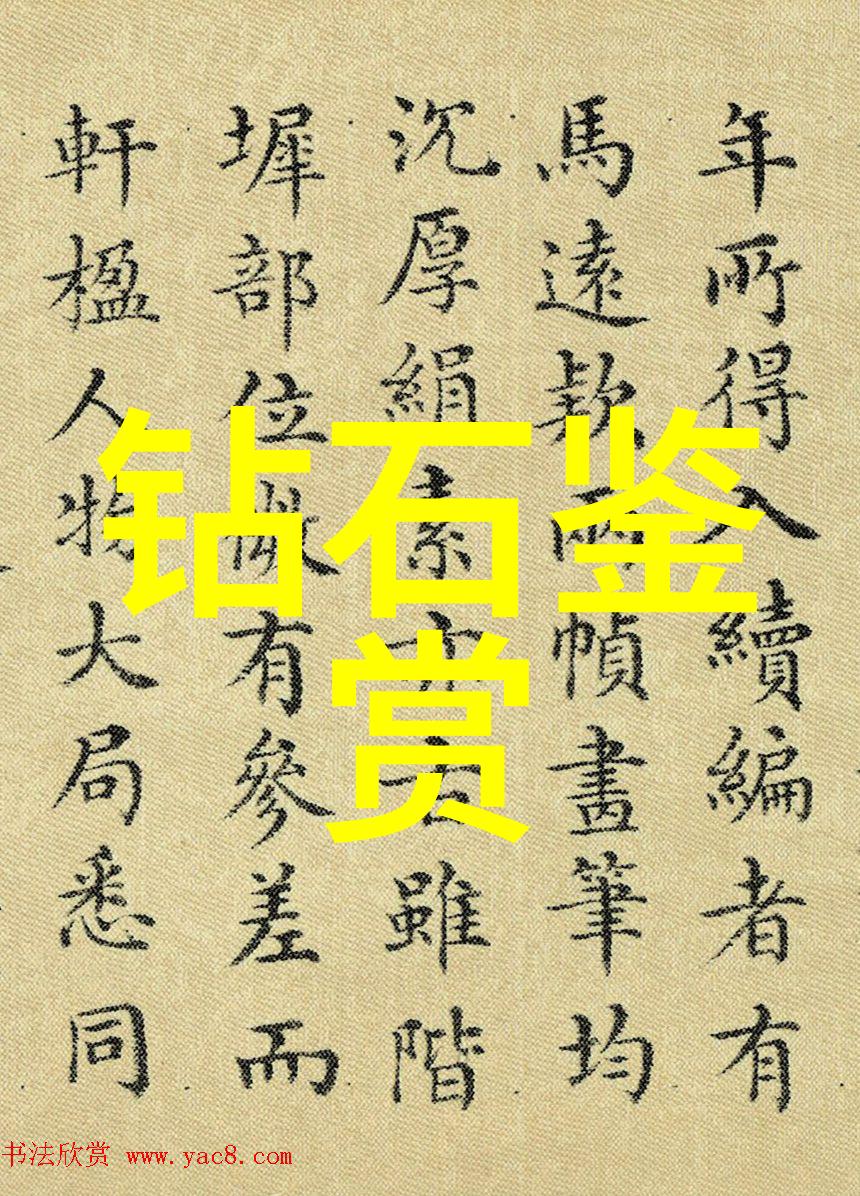 年所得入續編者有
馬遠欵兩幀畫筆均
沉厚絹素亦古雖階
墀部位微有參差而
軒楹人物大局悉同
钻石鉴
赏
书法欣赏 www.yac8.com